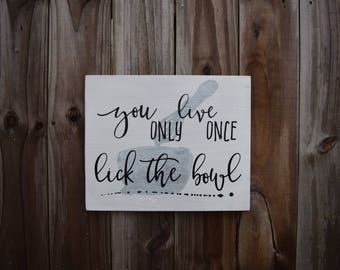 you live
ONLY ONCE
lick the bowl